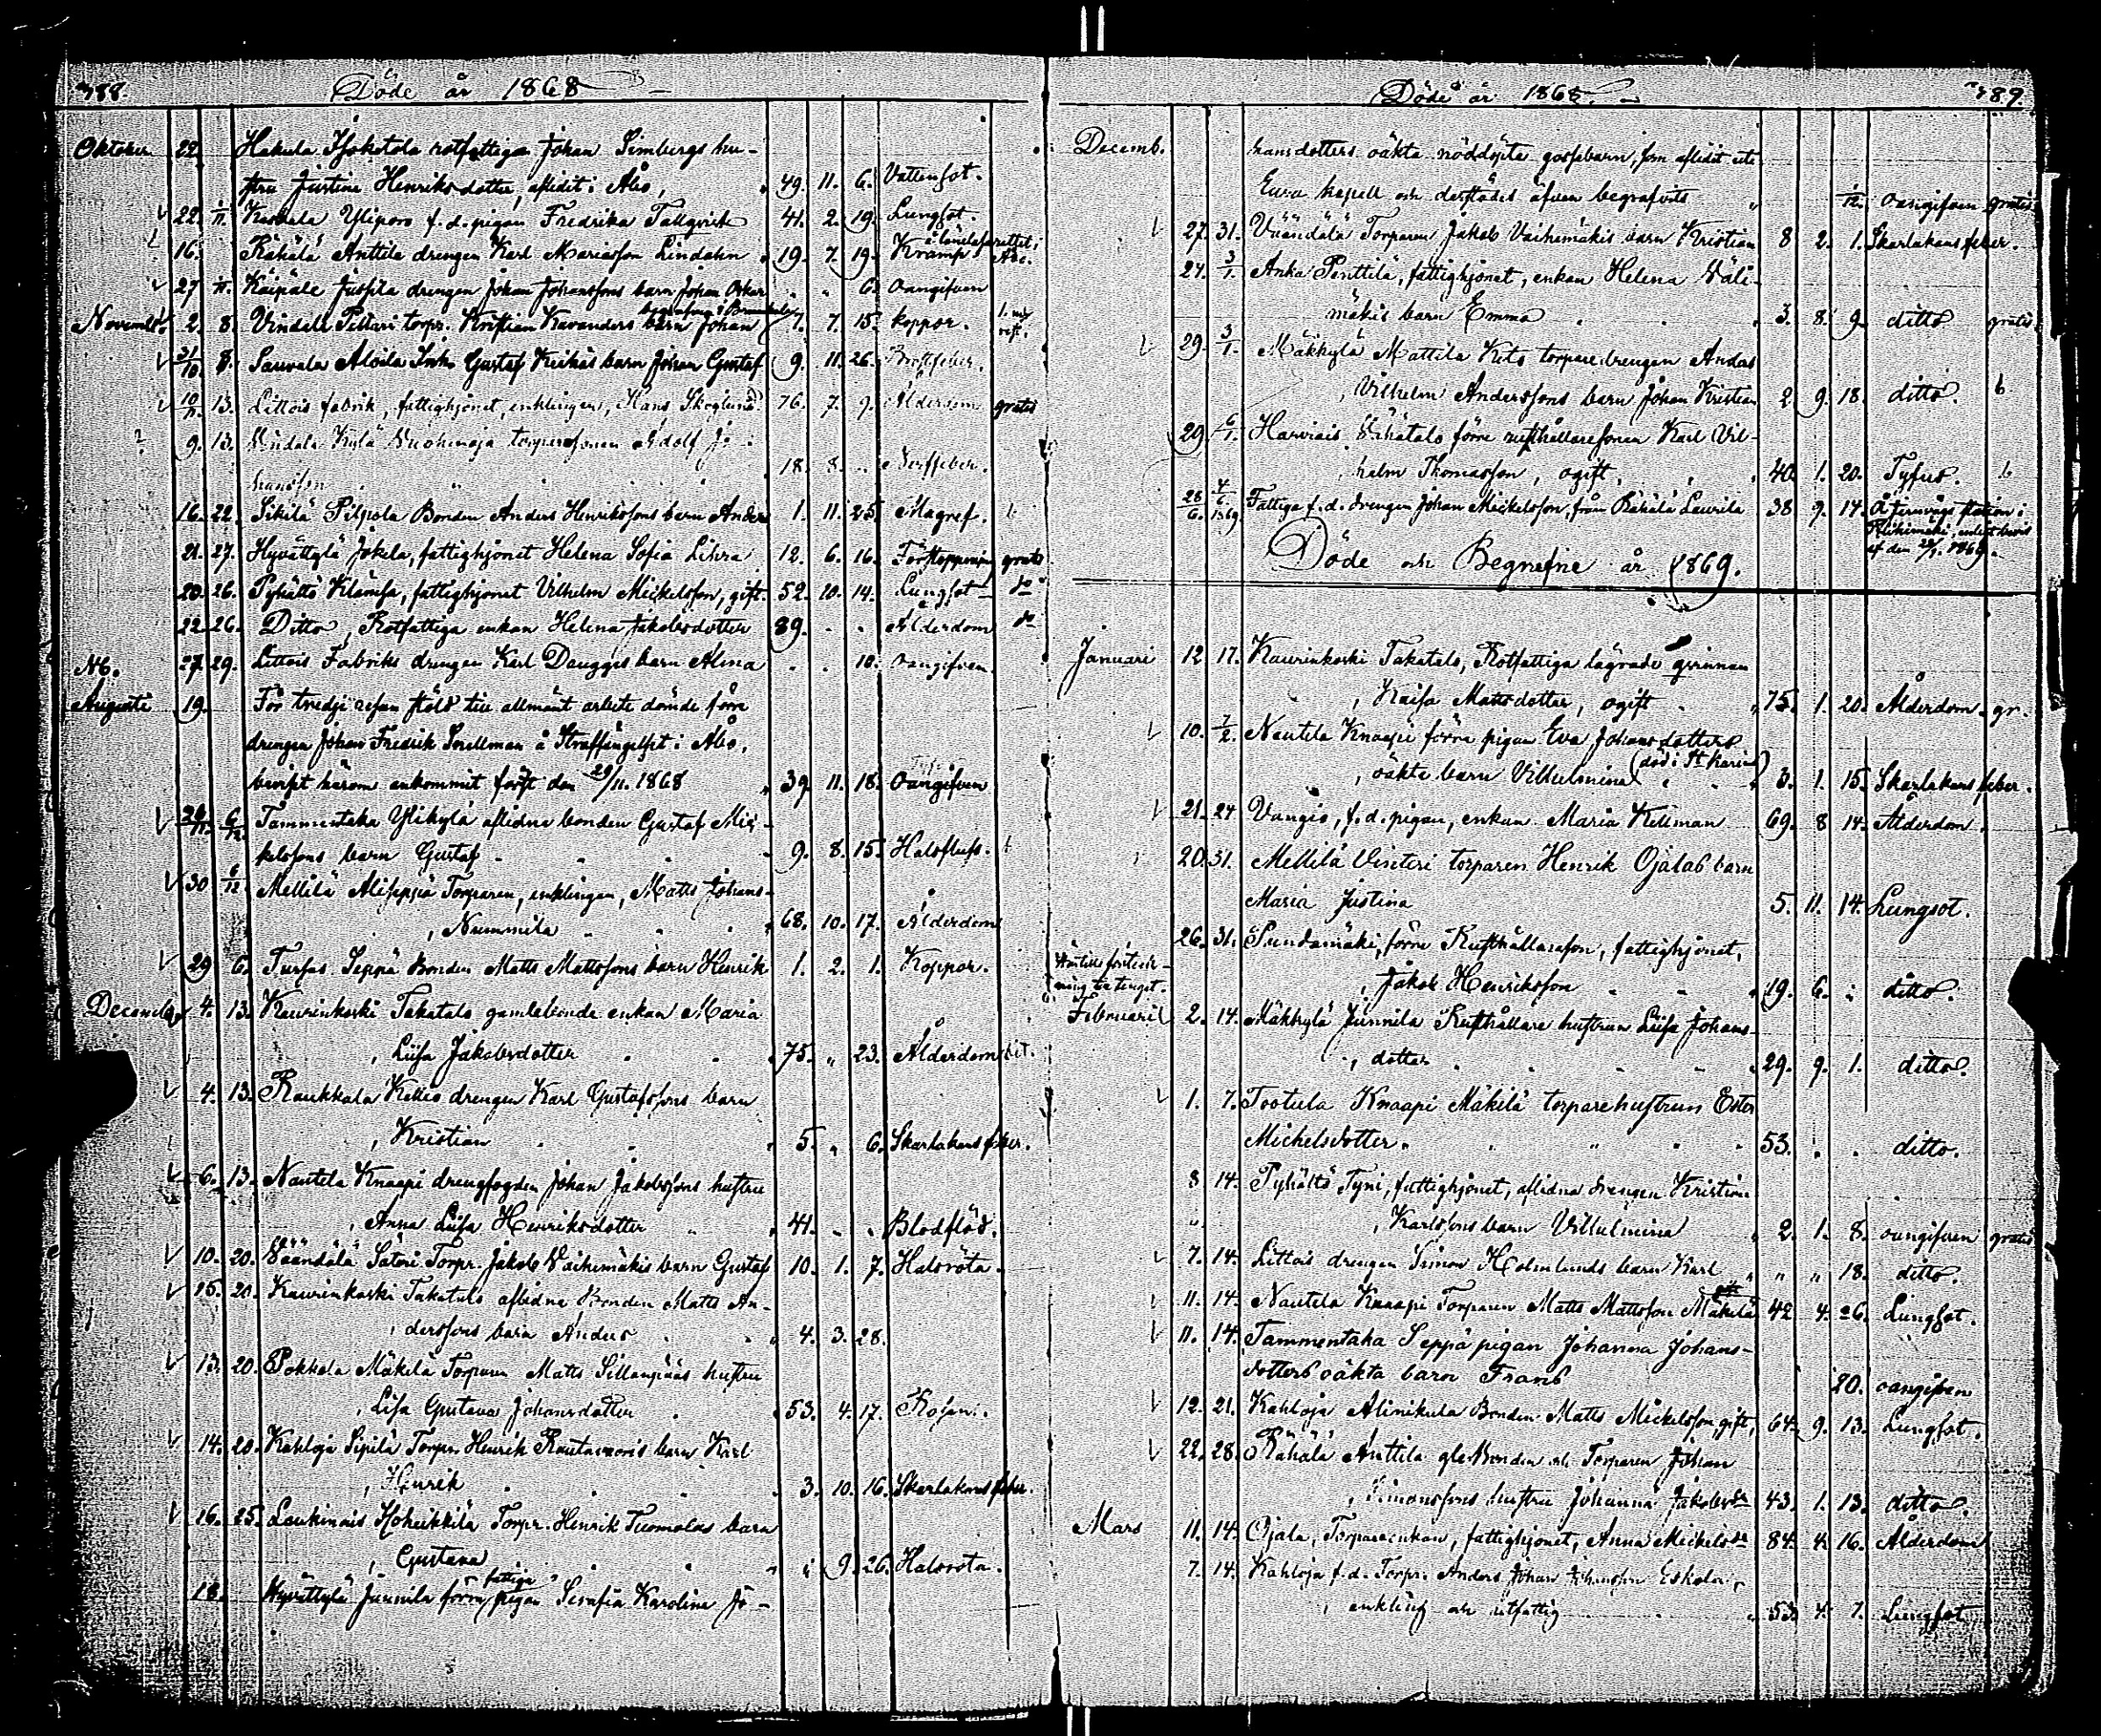 788.
Döde år 1868
Oktober 22. Hakula Isokatola rotfattiga Johan Simbergs hu-
stru Justina Henriksdotter, aflidit i Åbo, 49. 11. 6. Vattensot.
22. 1/11. Kaskala Yliporo f.d. pigan Fredrika Tallqvist 41. 2. 19. Lungsot.
16. Rähälä Anttila drengen Karl Mariasson Lindahn 19. 7. 19. Kramp å länelasarettet i Åbo.
27 Käipäle Jussila drengen Johan Johanssons barn Johan Oskar 6. oangifven
Novemb. 2. 8. Vindala Pettari torpr. Kristian Kavanders barn Johan 7. 7. 15. koppor.
31/10 8. Sauvala Aloila Gustaf Keikäs barn Johan Gustaf 9. 11. 26.
10/11. 13. Littois fabrik, fattighjonet, enklingen, Hans Skoglund 76. 7. 9. Ålderdom gratis
9. 13. Vindala Kylä torparesonen Adolf Jo-
hansson 18. 8. Nerffeber.
16. 22. Sikilä Pilpola Bonden Anders Henrikssons barn Anders 1. 11. 25. Magref.
21. 27. Hyvättylä Jokela, fattighjonet Helena Sofia Lihra 12. 6. 16. Förstoppning gratis
20. 26. Pyhältö Klämsä, fattighjonet Vilhelm Mickelsson, gift 52. 10. 14. Lungsot do
22. 26. Ditto, Rotfattiga enkan Helena Jakobsdotter 89. Ålderdom do
27. 29. Littois Fabriks drengen Karl Dauggs barn Alma 10. oangifven
NB.
Augusti 19. För tredje resan stöld till allmänt arbete dömde förre
drengen Johan Fredrik Snellman å Straffängelset i Åbo,
beviset härom ankommit först den 29/11. 1868 39. 11. 18. Oangifven
6/12. Tammentaka Ylikylä aflidna bonden Gustaf Mic-
kelssons barn Gustaf 9. 8. 15. Halsfluss.
30 6/12 Mellilä Aliseppä Torparen, enklingen, Matts Johans-
Nummila 68. 10. 17. Ålderdom
29 6. Turfas Seppä Bonden Matts Mattssons barn Henrik 1. 2. 1. Koppor.
Decemb. 4. 13. Kaurinkoski Takatalo gamlebonde enkan Maria
Lisa Jakobsdotter 75. " 23. Ålderdom
4. 13. Raukkala Kettis drengen Karl Gustafssons barn
Kristian 5. " 6. Skarlakansfeber.
6. 13. Nautela Knaapi drengfogden Johan Jakobssons hustru
Anna Lisa Henriksdotter 41. Blodflöd.
10. 20. Väändälä Säteri Torpr. Jakob Vaihemäkis barn Gustaf 10. 1. 7. Halsröta.
15. 20. Kaurinkoski Takatalo aflidna Bonden Matts An-
derssons barn Anders 4. 3. 28.
13. 20. Pokkola Mäkilä Torparen Matts Sillanpääs hustru
Lisa Gustava Johansdotter 53. 4. 17. Rosen.
14. 20. Kahloja Sipilä Torpr. Henrik Rautavuoris barn Karl
Henrik 3. 10. 16. Skarlakansfeber.
16. 25. Laukinais Isoheikkilä Torpr. Henrik Tuomolas barn
Gustava 9. 26. Halsröta.
18. Hyvättylä Junnila förra fattiga pigan Serafia Karolina Jo-
789.
Döde år 1868.
Decemb. hansdotters oäkta nöddöpta gossebarn, som aflidit uti
Eura kapell och derstädes äfven begrafvits oangifven gratis
27. 31. Väändälä Torparen Jakob Vaihemäkis barn Kristian 8 2. 1. Skarlakansfeber.
27. 3/1. Anka Penttilä, fattighjonet, enkan Helena Väli-
mäkis barn Emma 3. 8. 9. ditto gratis
29. 3/1. Mäkkylä Mattila Keto torparedrengen Anders
Vilhelm Anderssons barn Johan Kristian 2. 9. 18. ditto.
29. 6/1. Harviais Vähätalo förre rusthållaresonen Karl Vil-
helm Thomasson, ogift 40. 1. 20. Tyfus.
28/6. 4/6. 1869 Fattiga f.d. drengen Johan Mickelsson, från Rähälä Laurila 38. 9. 14. Å jernvägs station i
Riihimäki, enligt bevis
af den 28/1. 1869.
Döde och Begrafne år 1869.
Januari 12 17. Kaurinkoski Takatalo, Rotfattiga lägrade qvinnan
Kaisa Mattsdotter, ogift 75. 1. 20. Ålderdom. gr.
10. 7/2. Nautela Knaapi förra pigan Eva Johansdotters
oäkta barn Vilhelmina (död i St Karins) 3. 1. 15. Skarlakansfeber.
21. 24 Vangio, f.d. pigan, enkan Maria Kellman 69. 8 14. Ålderdom.
20. 31. Mellilä Vinteri torparen Henrik Ojalas barn
Maria Justina 5. 11. 14. Lungsot.
26. 31. Pundamäki, förre Rusthållareson, fattighjonet,
Jakob Henriksson 19. 6. ditto.
Februari 2. 14. Mäkkylä Junnila Rusthållare hustrun Lisa Johans-
dotter 29. 9. 1. ditto.
1. 7. Tootula Knaapi Mäkilä torparehustrun Ester
Michelsdotter 53. ditto.
8 14. Pyhältö Tyni, fattighjonet, aflidna drengen Kristian
Karlssons barn Vilhelmina 2. 1. 8. oangifven gratis
7. 14. Littois drengen Simon Holmlunds barn Karl " " 18. ditto.
11. 14. Nautela Knaapi Torparen Matts Mattsson Mäkelä 42 4. 26. Lungsot.
11. 14. Tammentaka Seppä pigan Johanna Johans-
dotters oäkta barn Frans 20. oangifven
12. 21. Kahloja Alinikula Bonden Matts Mickelsson, gift, 64. 9. 13. Lungsot.
22. 28. Rähälä Anttila gle Bonden och Torparen Johan
Simonssons hustru Johanna Jakobsdr 43. 1. 13. ditto.
Mars 11. 14. Ojala, Torpareenkan, fattighjonet, Anna Mickelsdr 84. 4 16. Ålderdom
7. 14. Kahloja f.d. Torpr. Anders Johan Johansson Eskola,
enkling och rotfattig 53. 4. 7. Lungsot